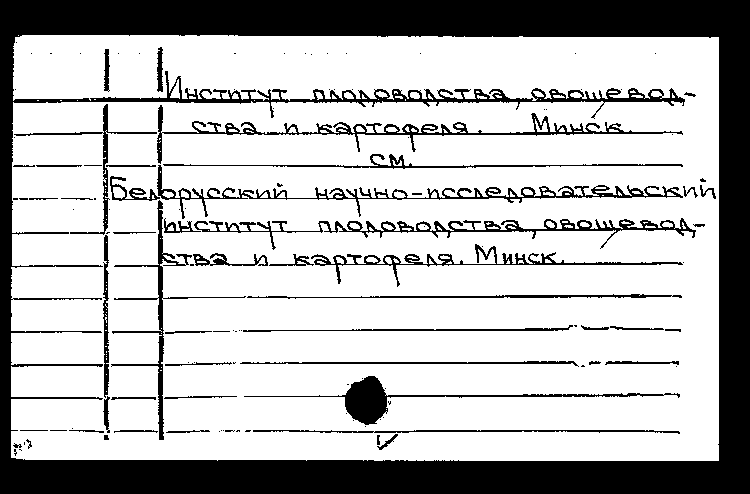 Институт плодоводства, овощевод-
ства и картофеля. Минск.
см.
Белорусский научно-исследовательский
институт плодоводства, овощевод-
ства и картофеля. Минск.